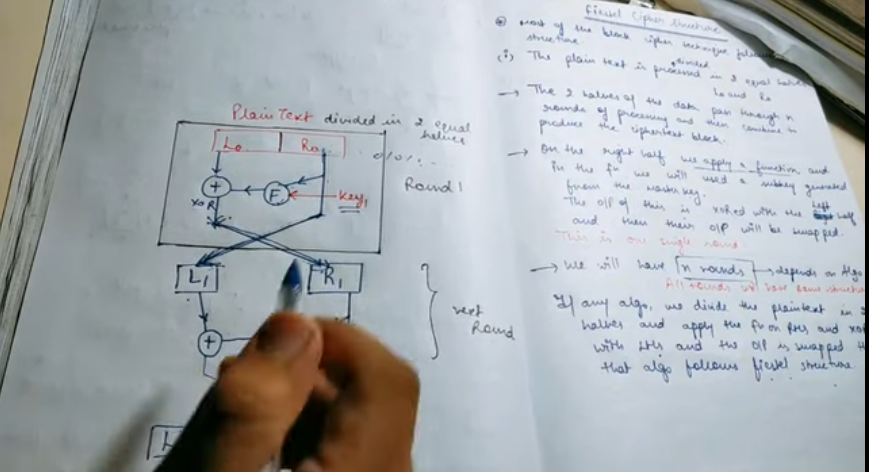 Plain Text divided in 2 equal
halves
L₀ R₀
Round 1
+ F Key₁
XOR
L₁ R₁
+
next
Round
Fiestel Cipher Structure
most of the block cipher technique
structure.
(i) The plain text is processed divided in 2 equal halves
L₀ and R₀
→ The 2 halves of the data pass through n
rounds of processing and then combine to
produce the ciphertext block.
→ On the right half we apply a function and
in the fn we will used a subkey generated
from the master key.
The O/P of this is XORed with the left half
and then their O/P will be swapped.
This is one single round.
→ We will have n rounds → depends on Algo
All rounds will have same structure
If any algo, we divide the plaintext in 2
halves and apply the fn on RHS and XOR
with LHS and the O/P is swapped
that algo follows fiestel structure